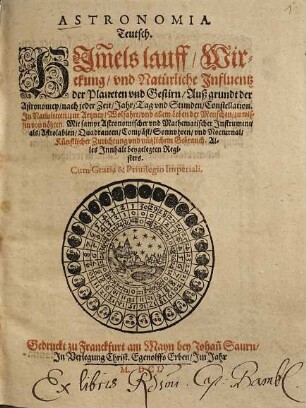 ASTRONOMIA.
Teutsch.
HImels lauff/ Wir-
ckung/ vnd Natürliche Influentz
der Planeten vnd Gestirn/ Auß grundt der
Astronomey/ nach jeder Zeit/ Jahr/ Tag vnd Stunden/ Constellation.
In Natiuiteten/ zur Artzney/ Wolfahrt/ vnd allem Leben der Menschen/ zu wis-
sen von nöhten. Mit sampt Astronomischer vnd Mathematischer Instrument/
als/ Astrolabien/ Quadranten/ Compast/ Sonnvhren/ vnd Nocturnal/
Künstlicher Zurichtung vnd nützlichem Gebrauch. Al-
les Innhalt beygelegten Regi-
sters.
Cum Gratia & Priuilegio Imperiali.
Gedruckt zu Franckfurt am Mayn bey Johañ Saurn/
In Verlegung Christ. Egenolffs Erben/ Im Jahr
Ex libris